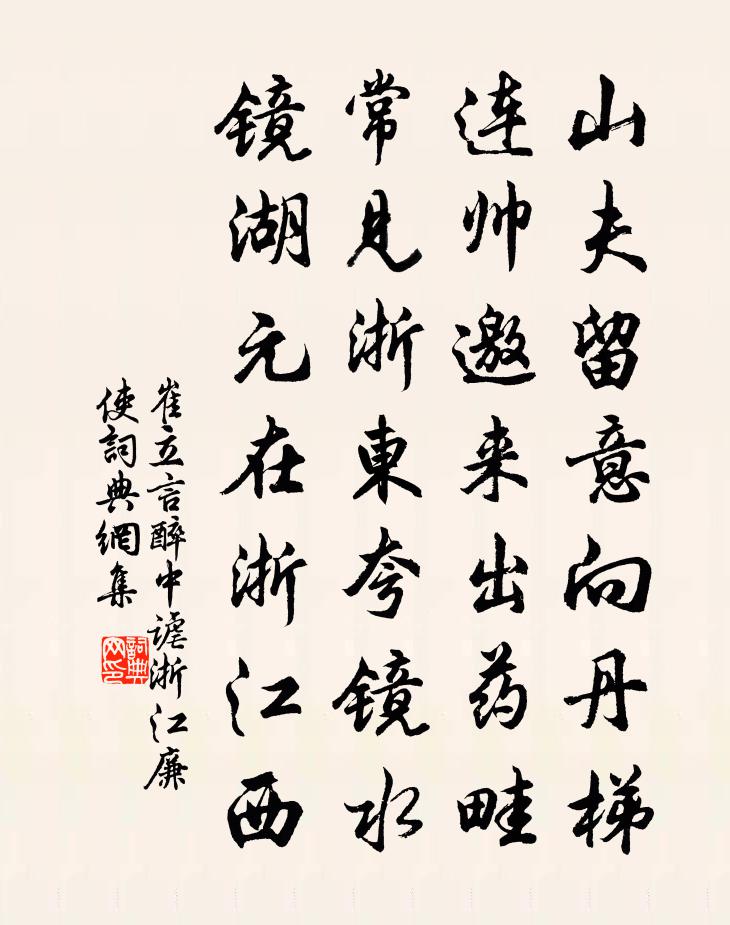 山夫留意向丹梯
连帅邀来出药畦
常见浙東夸镜水
镜湖元在浙江西
崔立言醉中谑浙江廉
使詞典網集
詞典
网印